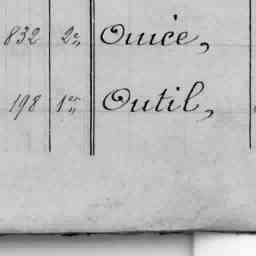 832 2e Ouïce,
198 1er Outil,